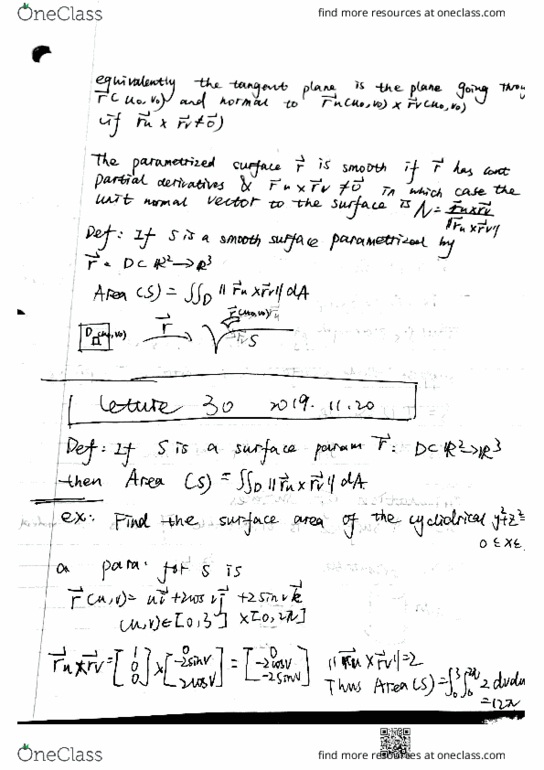 OneClass
find more resources at oneclass.com
equivalently the tangent plane is the plane going throu
r⃗(u0,v0) and normal to r⃗u(u0,v0) × r⃗v(u0,v0)
(if r⃗u × r⃗v ≠ 0⃗)
The parametrized surface r⃗ is smooth if r⃗ has cont
partial derivatives & r⃗u × r⃗v ≠ 0⃗ in which case the
unit normal vector to the surface is N = r⃗u×r⃗v / ||r⃗u×r⃗v||
Def: If S is a smooth surface parametrized by
r⃗: D⊂ℝ²→ℝ³
Area (S) = ∬D || r⃗u × r⃗v || dA
r⃗(u0,v0)
D (u0,v0) r⃗ S
Lecture 30 2019.11.20
Def: If S is a surface param r⃗: D⊂ℝ²→ℝ³
then Area (S) = ∬D || r⃗u × r⃗v || dA
ex: Find the surface area of the cyclidrical y²+z²=
0 ≤ x ≤
a para. for S is
r⃗(u,v) = ui⃗ + 2cos vj⃗ + 2sin vk⃗
(u,v)∈[0,3] × [0,2π]
r⃗u × r⃗v = [1 0 0] × [0 -2sinv 2cosv] = [0 -2cosv -2sinv] || r⃗u × r⃗v || = 2
Thus Area(S) = ∫₀³ ∫₀^2π 2 dvdu
= 12π
OneClass
find more resources at oneclass.com